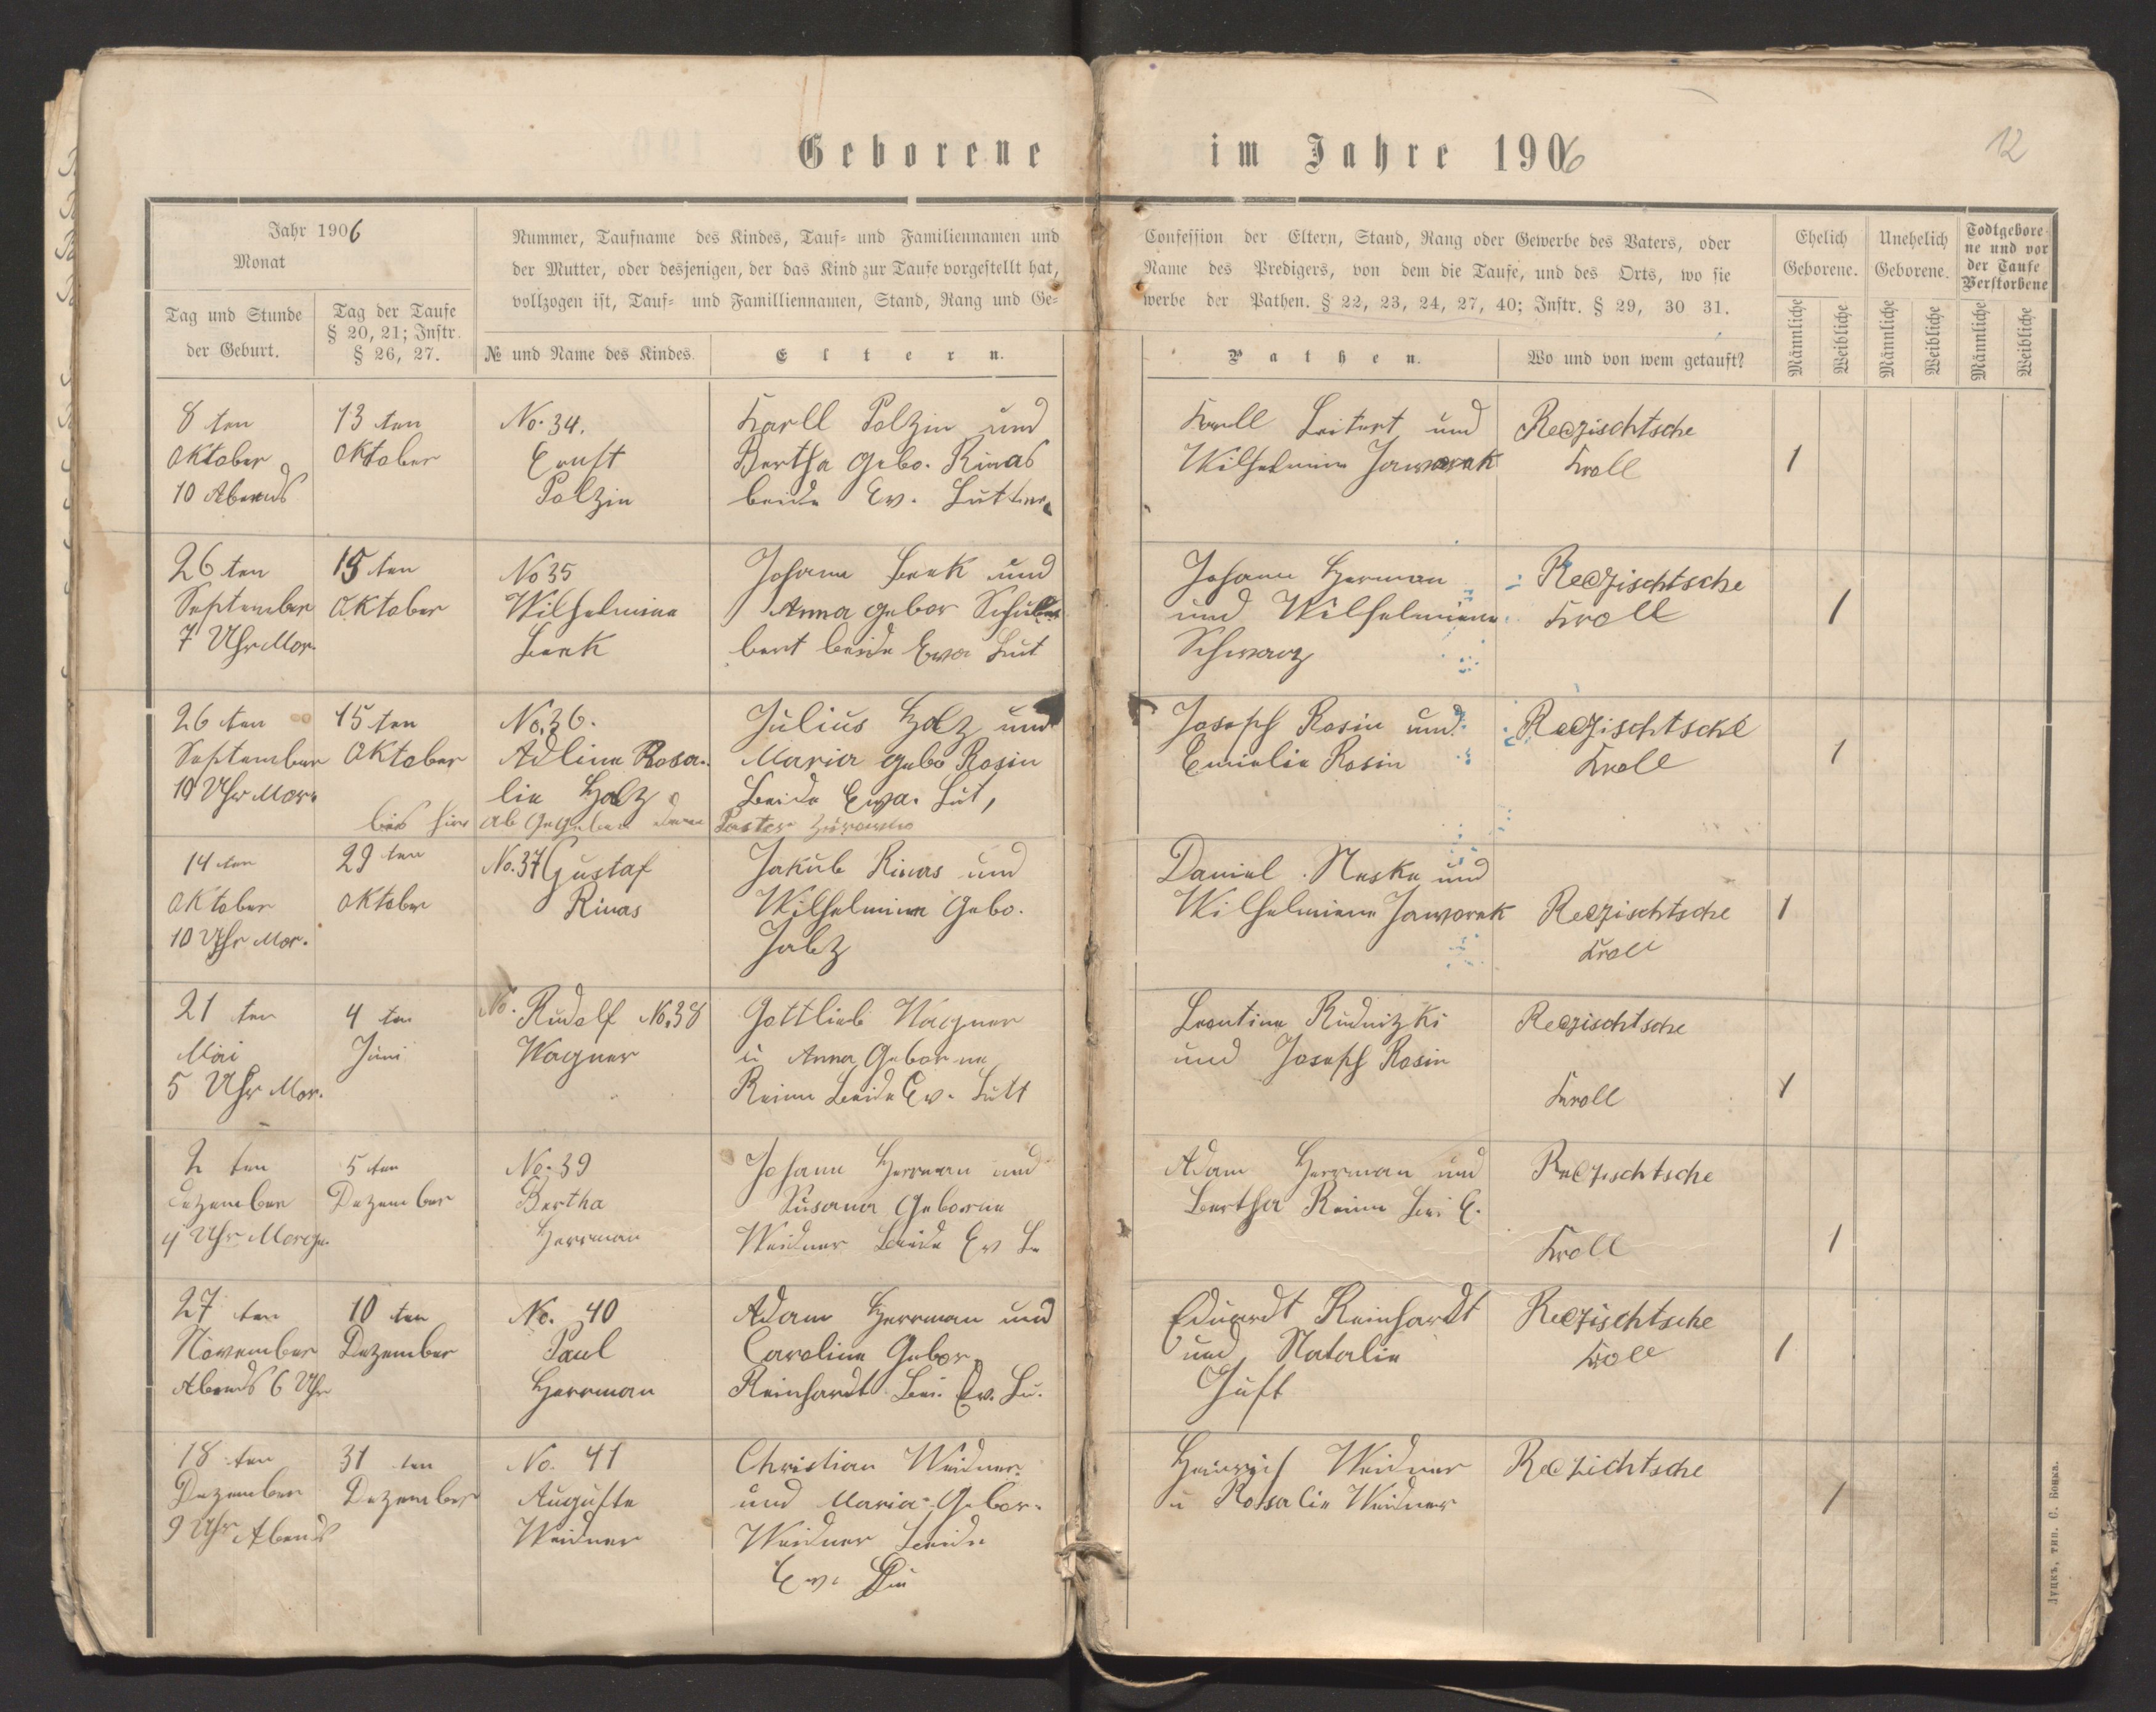 Geborene im Jahre 1906
12
Jahr 1906
Monat
Tag und Stunde
der Geburt.
Tag der Taufe
§ 20, 21; Instr.
§ 26, 27.
Nummer, Taufname des Kindes, Tauf- und Familiennamen und
der Mutter, oder desjenigen, der das Kind zur Taufe vorgestellt hat,
vollzogen ist, Tauf- und Familliennamen, Stand, Rang und Ge-
№ und Name des Kindes.
Eltern.
Confession der Eltern, Stand, Rang oder Gewerbe des Vaters, oder
Name des Predigers, von dem die Taufe, und des Orts, wo sie
werbe der Pathen. § 22, 23, 24, 27, 40; Instr. § 29, 30 31.
Pathen.
Wo und von wem getauft?
Ehelich
Geborene.
Unehelich
Geborene.
Todtgebore-
ne und vor
der Taufe
Verstorbene
Männliche
Weibliche
Männliche
Weibliche
Männliche
Weibliche
8 ten
Oktober
10 Abends
13 ten
Oktober
No. 34.
Ernst
Polzin
Karll Polzin und
Bertha gebo. Rinas
beide Ev.
Karll und
Wilhelmine Jaworak
Reczischtsche
Kroll
1
26 ten
September
7 Uhr Mor.
15 ten
Oktober
No 35
Wilhelmine
Lenk
Johann Lenk und
Anna gebor
bert beide Eva Lut
Johann Herman
und Wilhelmiene
Schwarz
Reczischtsche
Kroll
1
26 ten
September
10 Uhr Mor.
15 ten
Oktober
No. 36.
Adline Rosa-
lie Holz
Julius Holz und
Maria gebo Rosin
Beide Eva. Lut,
bis hier ab gegeben Paster
Joseph Rosin und
Emielie Rosin
Reczischtsche
Kroll
1
14 ten
Oktober
10 Uhr Mor.
29 ten
Oktober
No. 37 Gustaf
Rinas
Jakub Rinas und
Wilhelmine Gebo.
Jabz
Daniel Neske und
Wilhelmiene Jaworek
Reczischtsche
Kroll
1
21 ten
Mai
5 Uhr Mor.
4 ten
Juni
No. Rudolf No. 38
Wagner
Gottlieb Wagner
u Anna Geborne
Reimn Beide Ev. Lutt
Leontine Rudnitzki
und Joseph Rosin
Reczischtsche
Kroll
1
2 ten
Dezember
4 Uhr Morgen
5 ten
Dezember
No. 39
Bertha
Herrman
Johann Herrman und
Susana Geborne
Weidner Beide Ev L.
Adam Herrman und
Bertha Reimn Bei E.
Reczischtsche
Kroll
1
27 ten
November
Abends 6 Uhr
10 ten
Dezember
No. 40
Paul
Herrman
Adam Herrman und
Caroline Gebor.
Reinhardt Bei. Ev. Lu.
Eduardt Reinhardt
und Natalie
Just
Reczischtsche
Kroll
1
18 ten
Dezember
9 Uhr Abends
31 ten
Dezember
No. 41
Auguste
Weidner
Christian Weidner
und Maria Gebor.
Weidner beide
Ev. Lu
Heinrich Weidner
u Rosalie Weidner
Reczichtsche
1
Луцкъ, тип. С. Бокка.